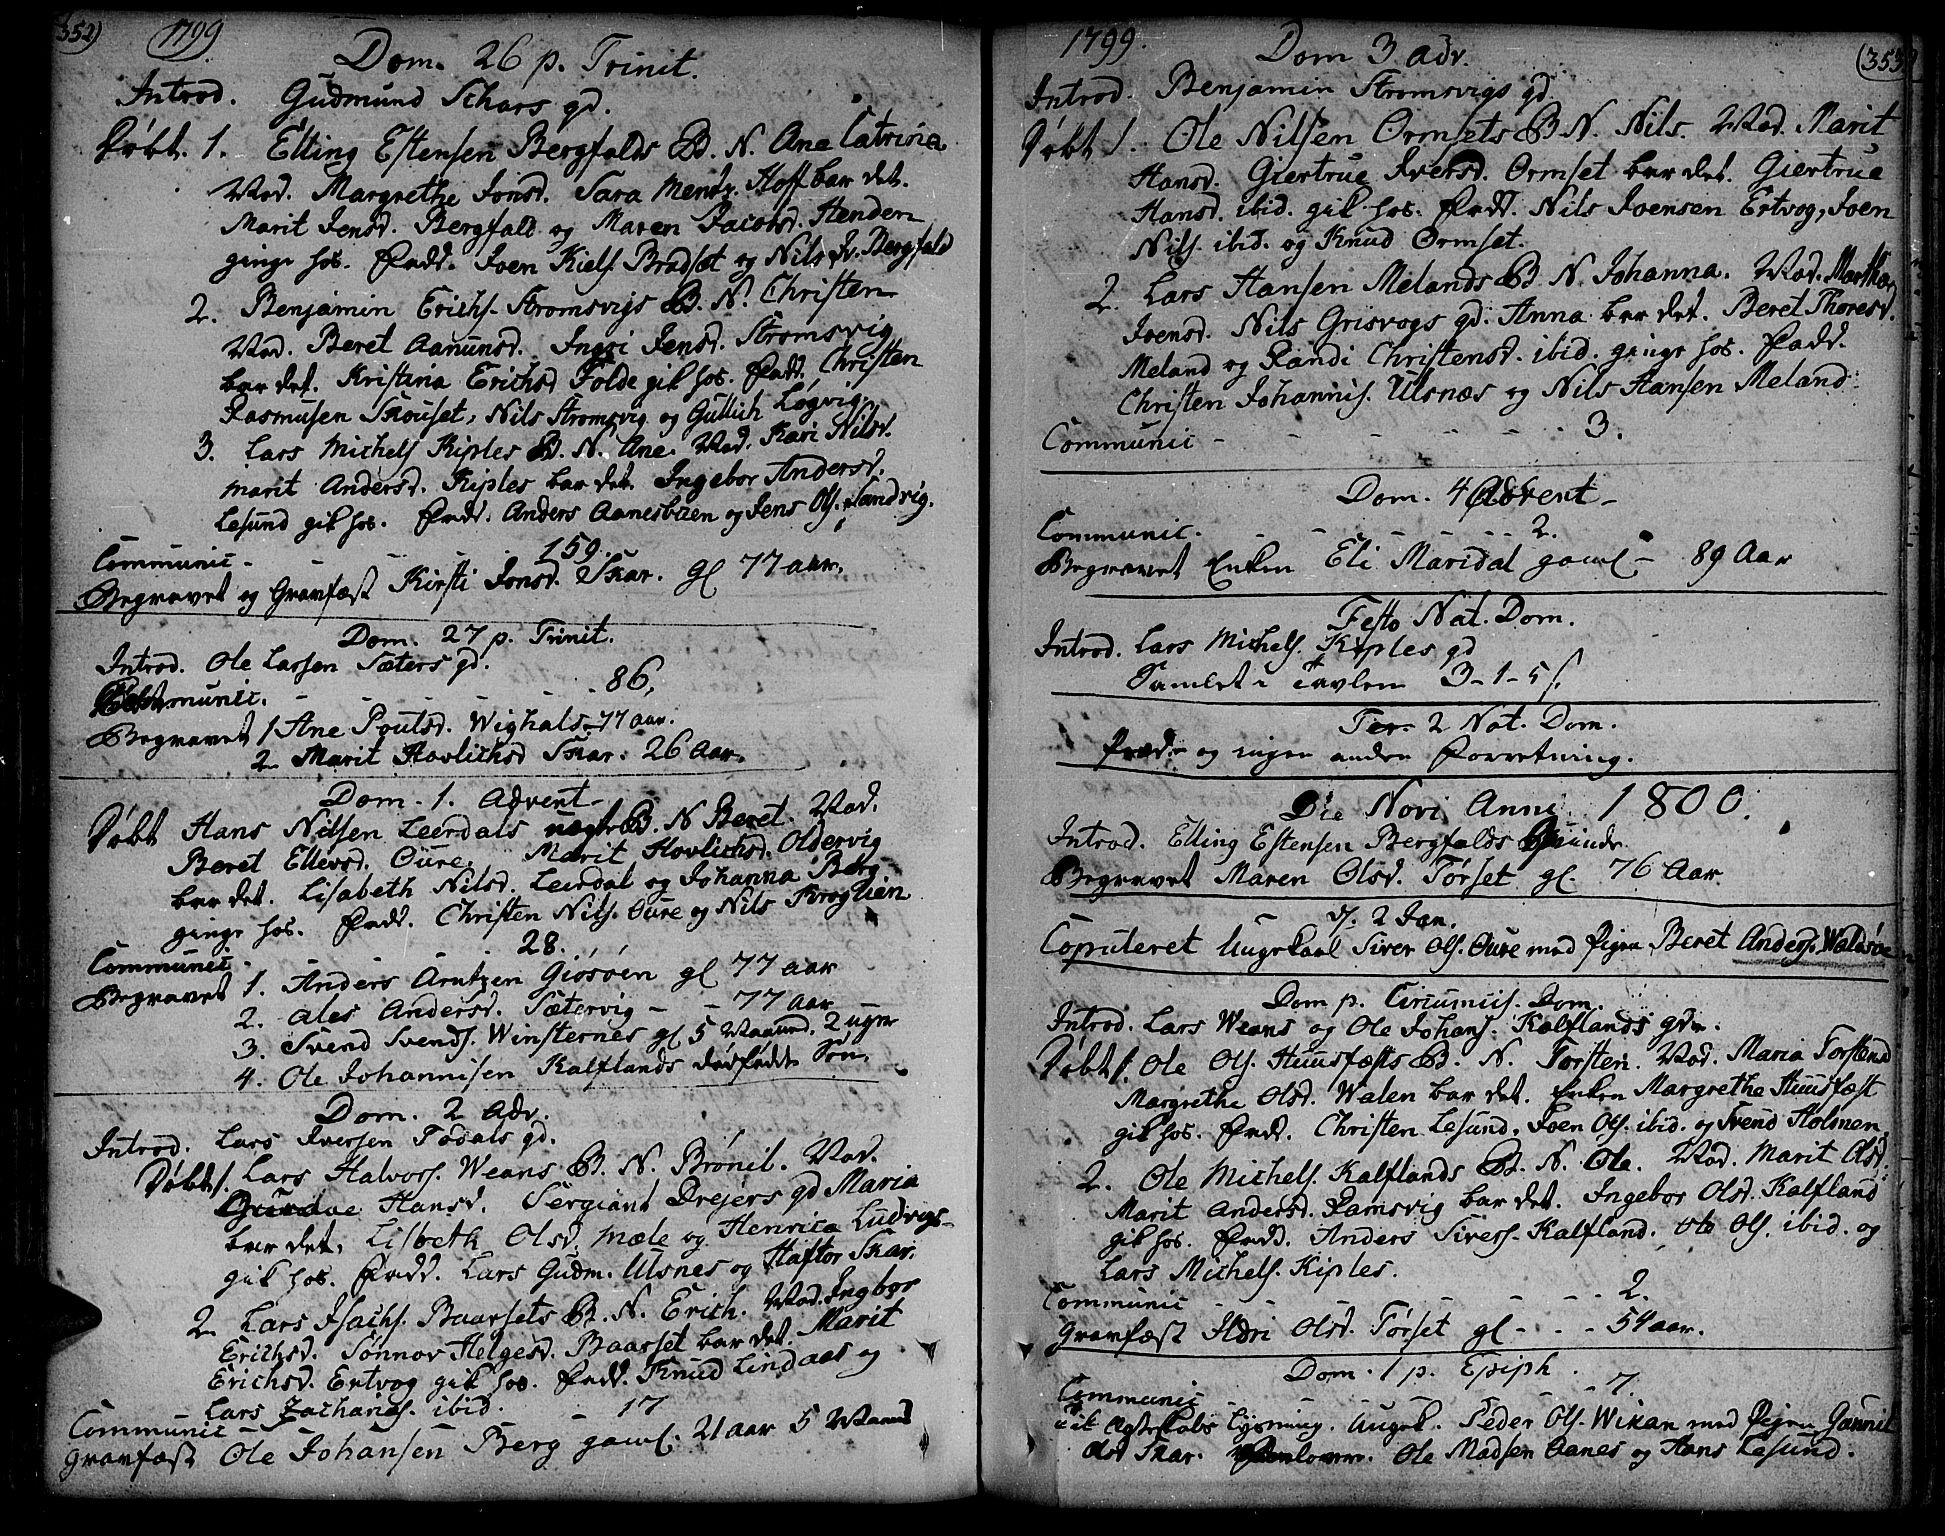 352)
1799
Dom. 26 p. Trinit.
Introd. Gudmund Schars gd.
Døbt. 1. Elling Estensen Bergfalds B. N. Ane Catrina
Mod. Margrethe Jonsd. Sara Mentz. Hoff bar det.
Marit Jensd. Bergfald og Maren Jacobsd. Henden
ginge hos. Fadd. Joen Kiels. Bradset og Nils Iv. Bergfald
2. Benjamin Erichs. Stromsvigs B. N. Christen
Mod. Beret Aanunsd. Ingri Jensd. Stromsvig
bar det. Kristina Erichsd Folde gik hos. Fadd. Christen
Rasmusen Skouset, Nils Stromsvig og Gullich Løgvig.
3. Lars Michels. Kiples B. N. Ane. Mod. Kari Nilsd.
Marit Andersd. Kiples bar det. Ingebor Andersd.
Lesund gik hos. Fadd. Anders Aanesbuen og Jens Ols. Sandvig.
Communic - 159.
Begravet og Gravfæst Kirsti Jonsd. Skar. gl 77 aar.
Dom. 27 p. Trinit.
Introd. Ole Larsen Sæters gd.
Communic. - - - - 86.
Begravet 1 Ane Poulsd. Wighals - 77 aar.
2. Marit Havlichsd Skar. 26 Aar.
Dom. 1. Advent -
Døbt Hans Nilsen Leerdals uægte B. N Beret. Mod.
Beret Ellevsd. Oure. Marit Hovlichsd. Oldervig
bar det. Lisabeth Nilsd. Leerdal og Johanna Berg
ginge hos. Fadd. Christen Nils. Oure og Nils Kroglien
Communic - 28.
Begravet 1. Anders Arntzen Giøsøen gl 77 aar
2. Ales Andersd. Sætervig - - 77 aar
3. Svend Svends. Winsternes gl 5 Maaned. 2 uger
4. Ole Johannisen Kalflands dødfødte Søn.
Dom. 2 Adv.
Introd. Lars Iversen Todals gd.
Døbt 1. Lars Halvors. Weans B. N. Brønil. Mod.
Hansd. Sergiant Drejers gd Maria
bar det. Lisbeth Olsd. Mæle og Henrica Ludvigs-
gik hos. Fadd. Lars Gudm. Ulsnes og Haftor Skar.
2. Lars Isachs. Baarsets B. N. Erich. Mod. Ingbor
Erichsd. Sønnov Helgesd. Baarset bar det. Marit
Erichsd. Ertvog gik hos. Fadd. Knud Lindaas og
Lars Zachariæs. ibid.
Communic - - 17
Gravfæst Ole Johansen Berg gaml. 21 aar 5 Maaned
1799.
353)
Dom 3 Adv.
Introd. Benjamin Stromsvigs gd
Døbt 1. Ole Nilsen Ormsets B N. Nils. Mod. Marit
Hansd. Giertrue Iversd. Ormset bar det. Giertrue
Hansd. ibid. gik hos. Fadd. Nils Joensen Ertvog, Joen
Nils. ibid. og Knud Ormset.
2. Lars Hansen Melands B N. Johanna. Mod. Martha
Joensd. Nils Grisvogs gd. Anna bar det. Beret Thoresd.
Meland og Randi Christensd. ibid. ginge hos. Fadd.
Christen Johannis. Ulsnæs og Nils Hansen Meland.
Communic - - - - - 3.
Dom. 4 Advent -
Communic. - - - - 2.
Begravet Enken Eli Maridal gaml - 89 Aar
Festo Nat. Dom.
Introd. Lars Michels. Kiples gd
Samlet i Tavlen 3-1-5 s.
Fer. 2 Nat. Dom.
Præd. og ingen anden Forretning.
Die Novi Anni 1800.
Introd. Elling Estensen Bergfalds Qvinde
Begravet Maren Olsd. Tørset gl. 76 Aar
d. 2 Jan.
Copuleret Ungekarl Siver Ols. Oure med Pigen Beret Anders. Waldsøe
Dom p. Circumcis. Dom.
Introd. Lars Weans og Ole Johans. Kalflands gdr.
Døbt 1. Ole Ols. Huusfæsts B. N. Torsten. Mod. Maria Torstensd
Margrethe Olsd. Walen bar det. Enken Margrethe Huusfæst
gik hos. Fadd. Christen Lesund, Joen Ols. ibid. og Svend Holmen
2. Ole Michels. Kalflands B. N. Ole. Mod. Marit Olsd.
Marit Andersd. Ramsvig bar det. Ingebor Olsd. Kalfland
gik hos. Fadd. Anders Sivers. Kalfland. Ole Ols. ibid. og
Lars Michels. Kiples.
Communic - - - - 2.
Gravfæst Ildri Olsd. Tørset gl - - - 54 aar.
Dom. 1 p. Epiph.
Communic - - 7.
Til Ægteskabs Lysning. Ungek. Peder Ols. Wikan med Pigen Gunnil
Olsd Skar. Ole Madsen Aanes og Hans Lesund.